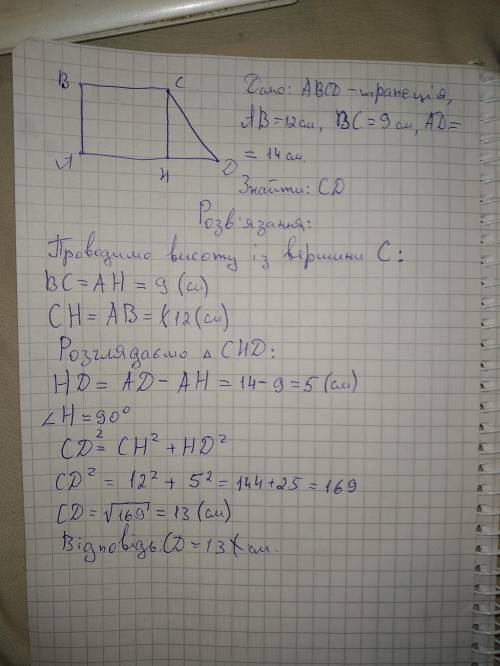 B C
Дано: ABCD - трапеція,
AB = 12 см, BC = 9 см, AD =
= 14 см.
A H D
Знайти: CD
Розв'язання:
Проводимо висоту із вершини C:
BC = AH = 9 (см)
CH = AB = 12 (см)
Розглядаємо △ CHD:
HD = AD - AH = 14 - 9 = 5 (см)
∠H = 90°
CD² = CH² + HD²
CD² = 12² + 5² = 144 + 25 = 169
CD = √169 = 13 (см)
Відповідь: CD = 13 см.